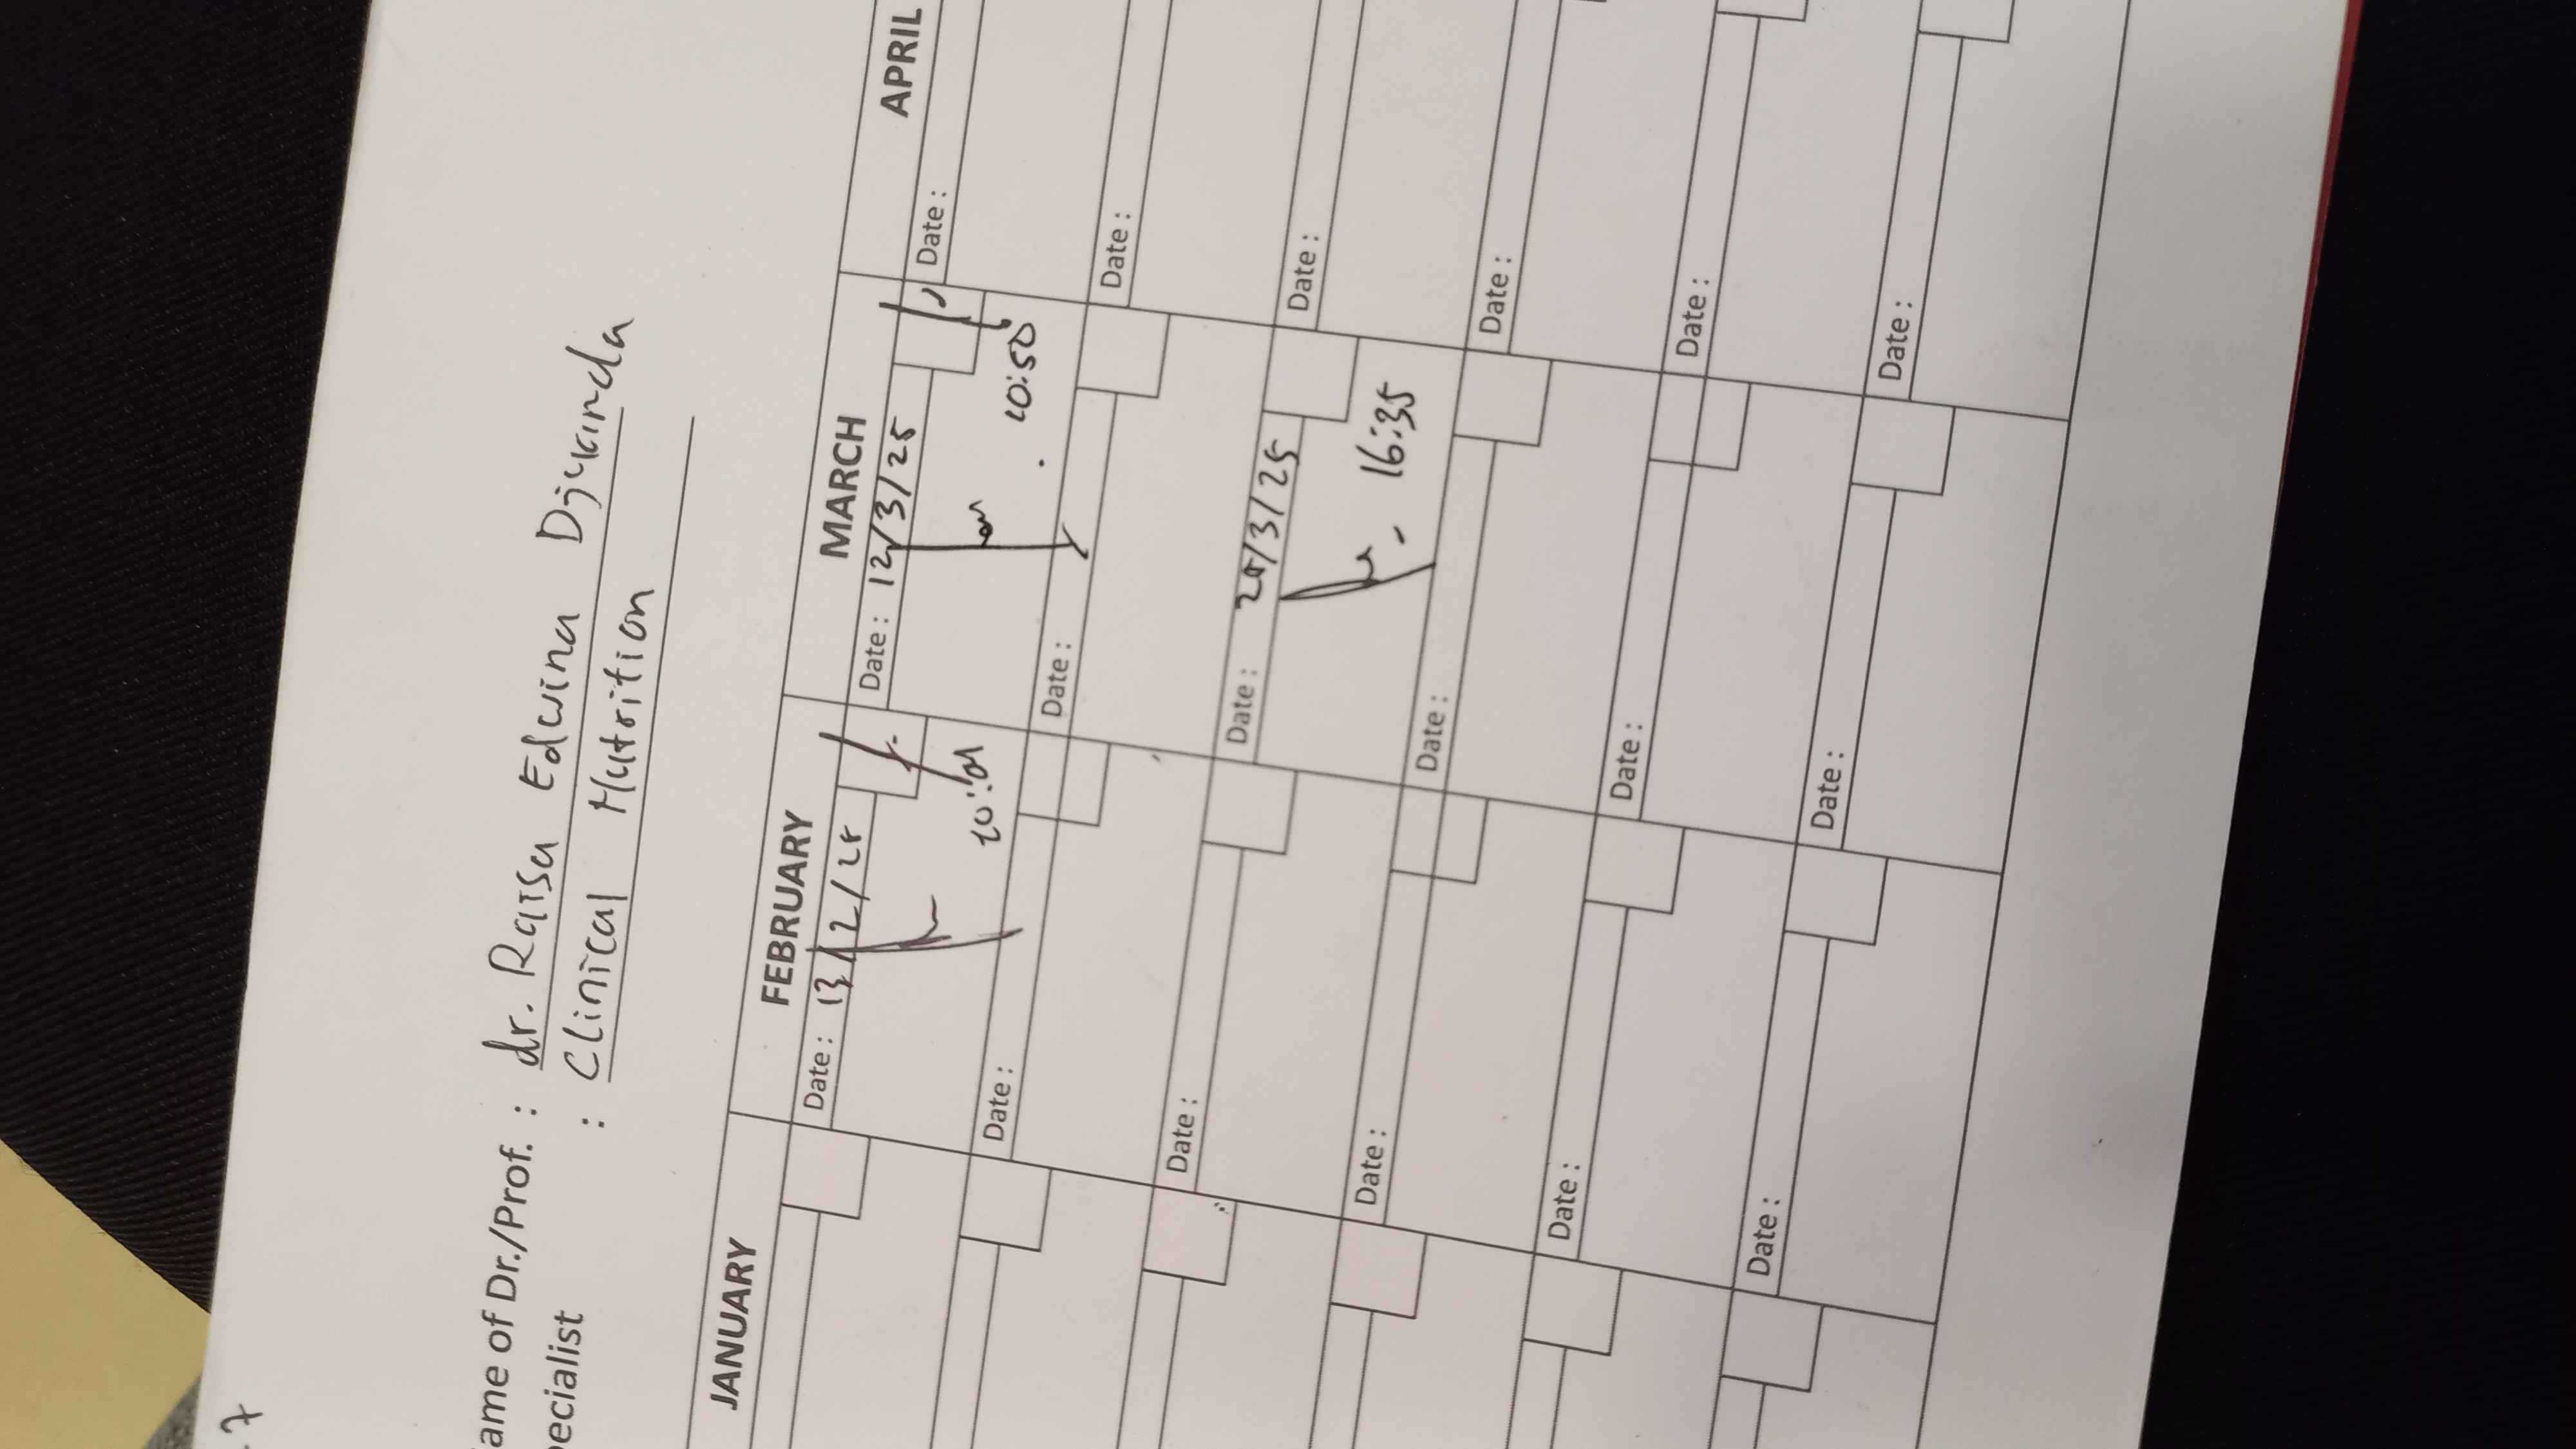 7
ame of Dr./Prof. : dr. Raisa Edwina Djuanda
pecialist : Clinical Nutrition
JANUARY FEBRUARY MARCH APRIL
Date: 13/2/25 Date: 12/3/25 Date:
10:01 10:50
Date: Date: Date:
Date: Date: /3/25 Date:
16:35
Date: Date: Date:
Date: Date: Date:
Date: Date: Date: